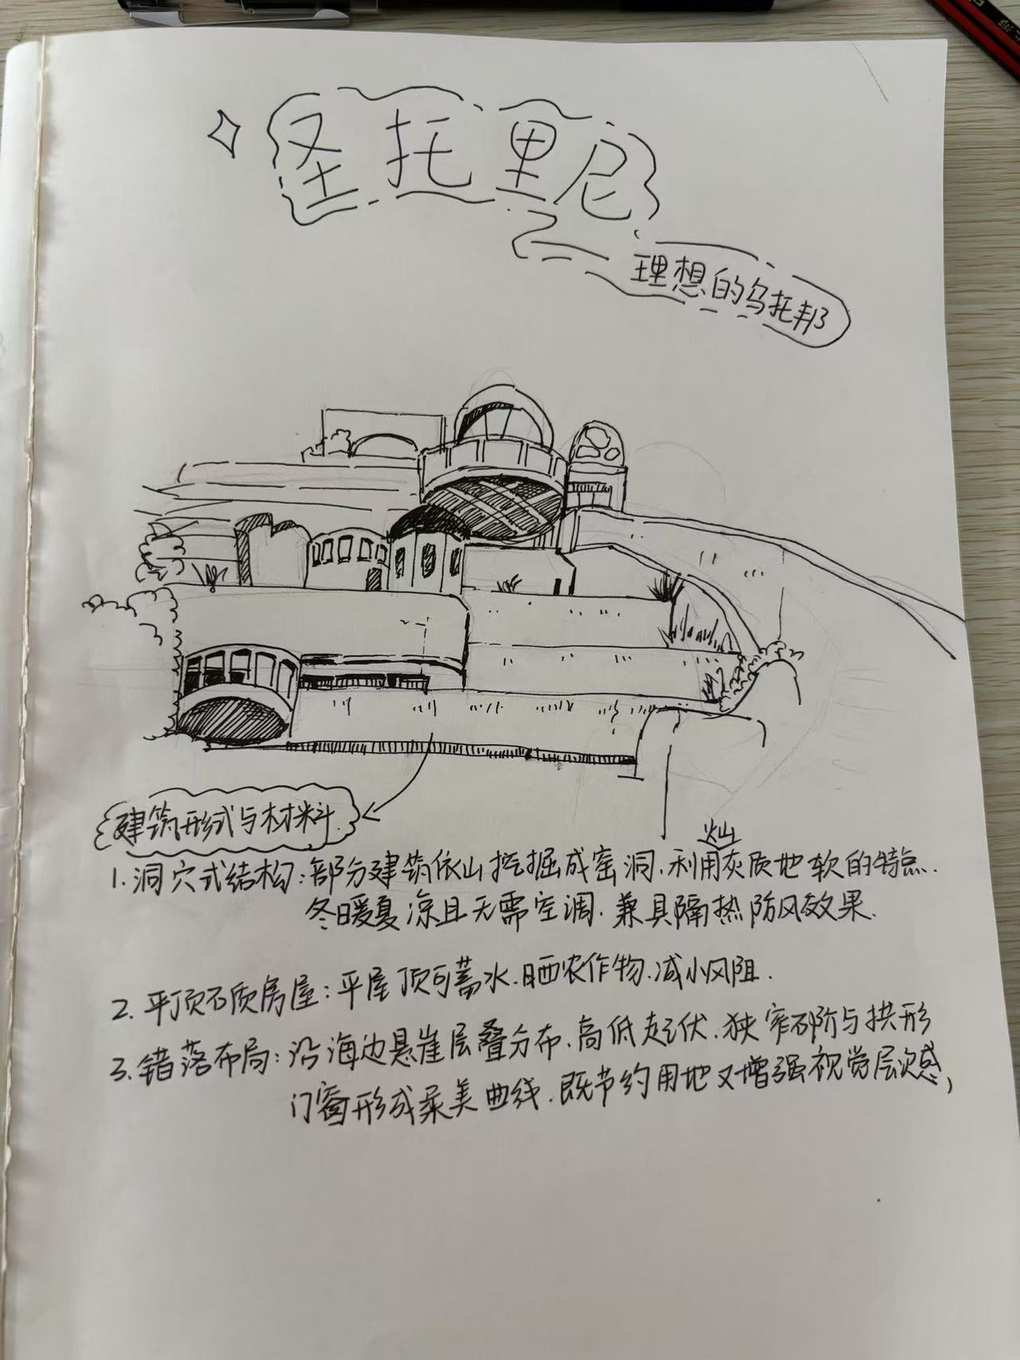 圣托里尼
理想的乌托邦
建筑形式与材料.
火山
1.洞穴式结构:部分建筑依山挖掘成窑洞,利用灰质地软的特点.
冬日暖夏凉且无需空调.兼具隔热防风效果.
2.平顶石质房屋:平屋顶可蓄水.晒农作物.减小风阻.
3.错落布局:沿海边悬崖层叠分布,高低起伏.狭窄石阶与拱形
门窗形成柔美曲线.既节约用地又增强视觉层次感,